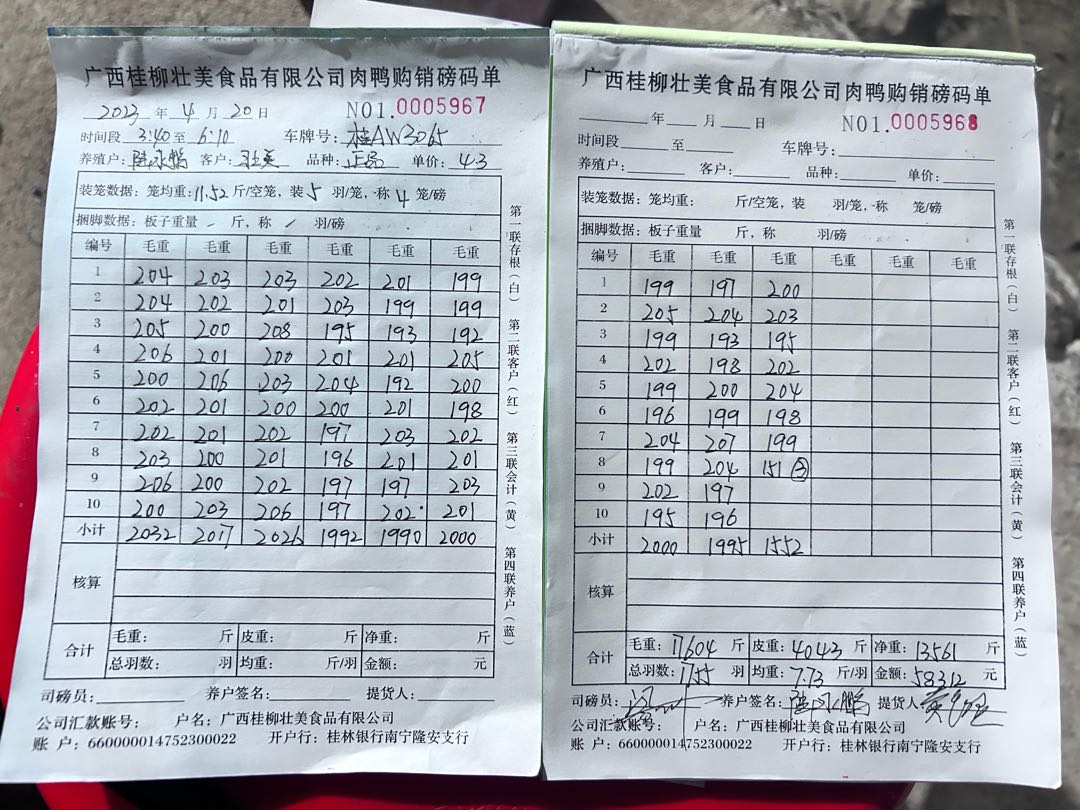 广西桂柳壮美食品有限公司肉鸭购销磅码单
2023 年 4 月 20 日 NO1.0005967
时间段 3:40 至 6:10 车牌号: 桂AW3065
养殖户: 客户: 壮美 品种: 正品 单价: 4.3
装笼数据: 笼均重: 11.52 斤/空笼, 装 5 羽/笼, 称 4 笼/磅
捆脚数据: 板子重量 / 斤, 称 / 羽/磅
编号 毛重 毛重 毛重 毛重 毛重 毛重
1 204 203 203 202 201 199
2 204 202 201 203 199 199
3 205 200 208 195 193 192
4 206 201 200 201 201 205
5 200 206 203 204 192 200
6 202 201 200 200 201 198
7 202 201 202 197 203 202
8 203 200 201 196 201 201
9 206 200 202 197 197 203
10 200 203 206 197 202 201
小计 2032 2017 2026 1992 1990 2000
核算
合计 毛重: 斤 皮重: 斤 净重: 斤
总羽数: 羽 均重: 斤/羽 金额: 元
司磅员: 养户签名: 提货人:
公司汇款账号: 户名: 广西桂柳壮美食品有限公司
账 户: 660000014752300022 开户行: 桂林银行南宁隆安支行
第一联存根(白) 第二联客户(红) 第三联会计(黄) 第四联养户(蓝)
广西桂柳壮美食品有限公司肉鸭购销磅码单
年 月 日 NO1.0005968
时间段 至 车牌号:
养殖户: 客户: 品种: 单价:
装笼数据: 笼均重: 斤/空笼, 装 羽/笼, 称 笼/磅
捆脚数据: 板子重量 斤, 称 羽/磅
编号 毛重 毛重 毛重 毛重 毛重 毛重
1 199 197 200
2 205 204 203
3 199 193 195
4 202 198 202
5 199 200 204
6 196 199 198
7 204 207 199
8 199 204 151 ③
9 202 197
10 195 196
小计 2000 1995 1552
核算
合计 毛重: 17604 斤 皮重: 4043 斤 净重: 13561 斤
总羽数: 1755 羽 均重: 7.73 斤/羽 金额: 58312 元
司磅员: 养户签名: 提货人
公司汇款账号: 户名: 广西桂柳壮美食品有限公司
账 户: 660000014752300022 开户行: 桂林银行南宁隆安支行
第一联存根(白) 第二联客户(红) 第三联会计(黄) 第四联养户(蓝)